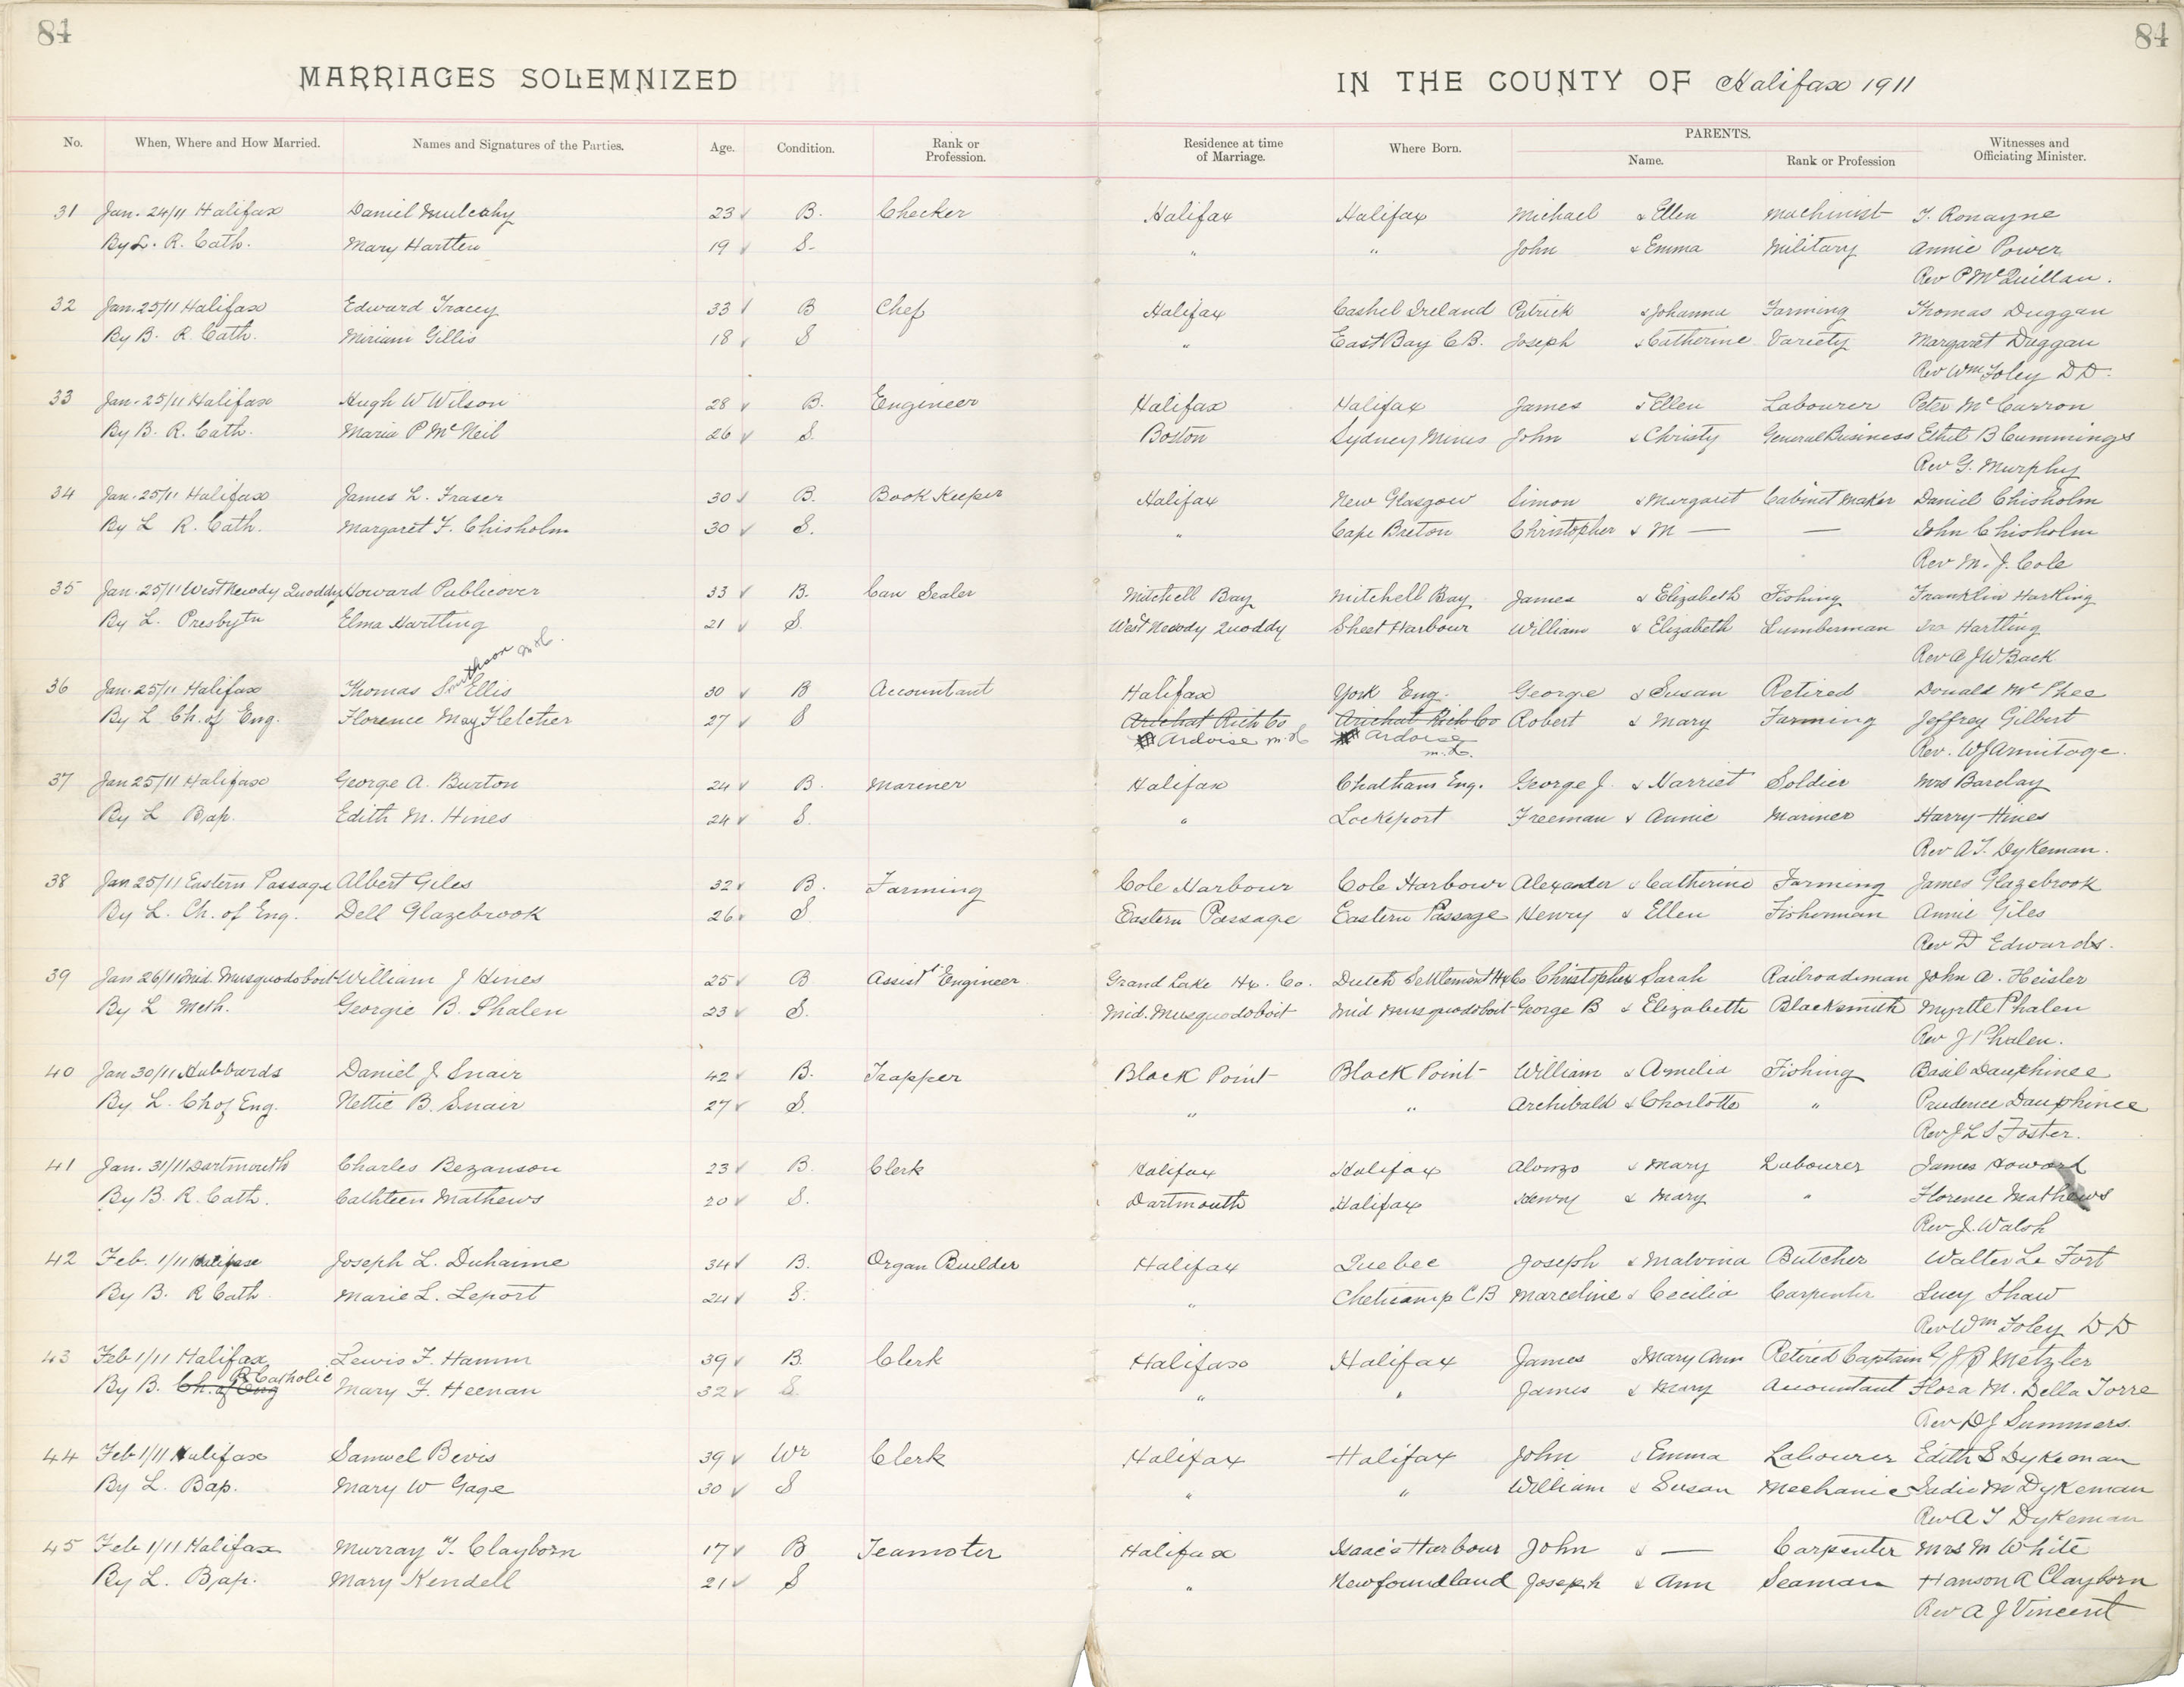 84
84
MARRIAGES SOLEMNIZED IN THE COUNTY OF Halifax 1911
No. When, Where and How Married. Names and Signatures of the Parties. Age. Condition. Rank or Profession. Residence at time of Marriage. Where Born. PARENTS. Name. Rank or Profession Witnesses and Officiating Minister.
31 Jan. 24/11 Halifax Daniel Mulcahy 23 B. Checker Halifax Halifax Michael & Ellen Machinist T. Ronayne
By L. R. Cath. Mary Hartlen 19 S. " " John & Emma Military Annie Power
Rev P McQuillan.
32 Jan. 25/11 Halifax Edward Tracey 33 B Chef Halifax Cashel Ireland Patrick & Johanna Farming Thomas Duggan
By B. R. Cath. Miriam Gillis 18 S " East Bay C.B. Joseph & Catherine Variety Margaret Duggan
Rev Wm Foley D D.
33 Jan. 25/11 Halifax Hugh W Wilson 28 B. Engineer Halifax Halifax James & Ellen Labourer Peter McCarron
By B. R. Cath. Maria P McNeil 26 S. Boston Sydney Mines John & Christy General Business Ethel B Cummings
Rev G. Murphy
34 Jan. 25/11 Halifax James L. Fraser 30 B. Book Keeper Halifax New Glasgow Simon & Margaret Cabinet Maker Daniel Chisholm
By L R. Cath. Margaret F. Chisholm 30 S. " Cape Breton Christopher & M — — John Chisholm
Rev M. J. Cole
35 Jan. 25/11 West Newdy Quoddy Howard Publicover 33 B. Can Sealer Mitchell Bay Mitchell Bay James & Elizabeth Fishing Franklin Hartling
By L. Presbytn Elma Hartling 21 S. West Newdy Quoddy Sheet Harbour William & Elizabeth Lumberman Ira Hartling
Rev A J W Back
36 Jan. 25/11 Halifax Thomas Ellis 30 B Accountant Halifax York Eng. George & Susan Retired Donald McPhee
By L Ch. of Eng. Florence May Fletcher 27 S Arichat Rich Co Arichat Rich Co Robert & Mary Farming Jeffrey Gilbert
Ardoise m.L Ardoise m.L. Rev. W J Armitage.
37 Jan 25/11 Halifax George A. Burton 24 B. Mariner Halifax Chatham Eng. George J. & Harriet Soldier Mrs Barclay
By L Bap. Edith M. Hines 24 S. " Lockeport Freeman & Annie Mariner Harry Hines
Rev A.T. Dykeman.
38 Jan 25/11 Eastern Passage Albert Giles 32 B. Farming Cole Harbour Cole Harbour Alexander & Catherine Farming James Glazebrook
By L. Ch. of Eng. Dell Glazebrook 26 S. Eastern Passage Eastern Passage Henry & Ellen Fisherman Annie Giles
Rev D Edwards.
39 Jan 26/11 Mid. Musquodoboit William J Hines 25 B Assist Engineer Grand Lake Hx. Co. Dutch Settlement Hx Co Christopher & Sarah Railroadman John A. Heisler
By L Meth. Georgie B. Phalen 23 S. Mid. Musquodoboit Mid Musquodoboit George B & Elizabeth Blacksmith Myrtle Phalen
Rev J Phalen.
40 Jan 30/11 Hubbards Daniel J Snair 42 B. Trapper Black Point Black Point William & Amelia Fishing Basil Dauphinee
By L. Ch of Eng. Nettie B. Snair 27 S. " " Archibald & Charlotte " Prudence Dauphinee
Rev J L S Foster.
41 Jan. 31/11 Dartmouth Charles Bezanson 23 B. Clerk Halifax Halifax Alonzo & Mary Labourer James Howard
By B. R. Cath. Cathleen Mathews 20 S. Dartmouth Halifax Henry & Mary " Florence Mathews
Rev J. Walsh
42 Feb. 1/11 Halifax Joseph L. Duhaime 34 B. Organ Builder Halifax Quebec Joseph & Malvina Butcher Walter Le Fort
By B. R Cath Marie L. Leport 24 S. " Cheticamp C B Marceline & Cecilia Carpenter Lucy Shaw
Rev Wm Foley D D
43 Feb 1/11 Halifax Lewis F. Hamm 39 B. Clerk Halifax Halifax James & Mary Ann Retired Captain J P Metzler
By B. Ch. of Eng R Catholic Mary F. Heenan 32 S. " " James & Mary Accountant Flora M. Della Torre
Rev D J Summers.
44 Feb 1/11 Halifax Samuel Bevis 39 Wr Clerk Halifax Halifax John & Emma Labourer Edith S Dykeman
By L. Bap. Mary W Gage 30 S " " William & Susan Mechanic Sadie M Dykeman
Rev A T Dykeman
45 Feb 1/11 Halifax Murray T. Clayborn 17 B Teamster Halifax Isaac's Harbour John & — Carpenter Mrs M White
By L. Bap. Mary Kendell 21 S " Newfoundland Joseph & Ann Seaman Hanson A Clayborn
Rev A J Vincent